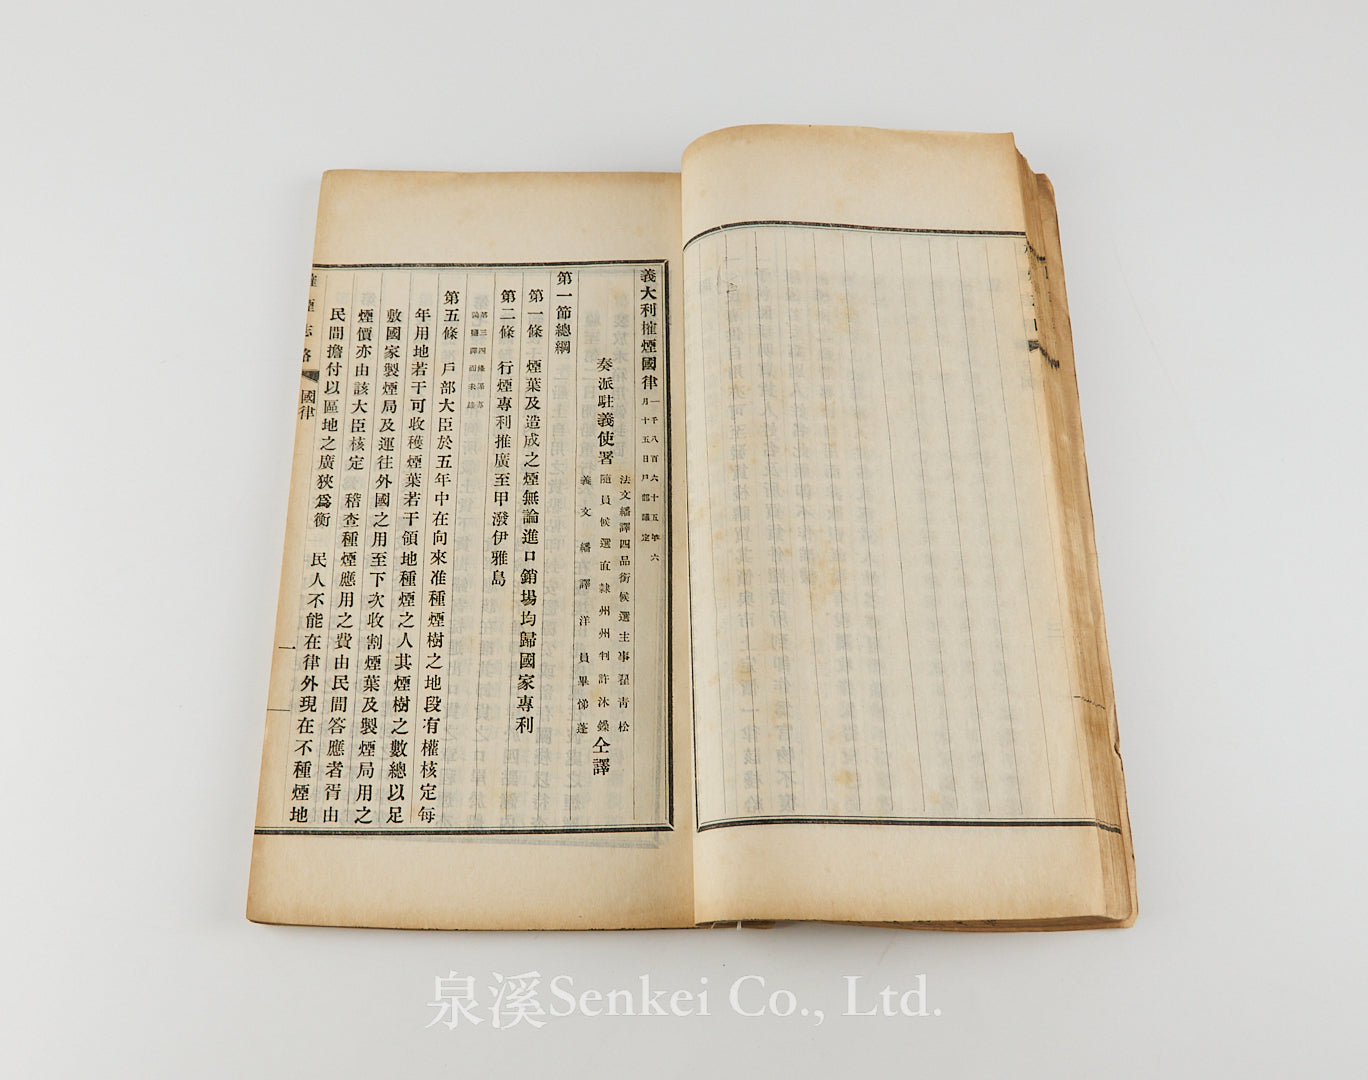 義大利榷煙國律
一千八百六十五年六
月十五日戶部議定
法文繙譯四品銜候選主事翟青松
奏派駐義使署隨員候選直隸州州判許沐鑅仝譯
義文繙譯洋員畢悌蓬
第一節總綱
第一條 煙葉及造成之煙無論進口銷場均歸國家專利
第二條 行煙專利推廣至甲潑伊雅島
第三四條
第五條 戶部大臣於五年中在向來准種煙樹之地段有權核定每
年用地若干可收穫煙葉若干領地種煙之人其煙樹之數總以足
敷國家製煙局及運往外國之用至下次收割煙葉及製煙局用之
煙價亦由該大臣核定 稽查種煙應用之費由民間答應者胥由
民間擔付以區地之廣狹爲衡 民人不能在律外現在不種煙地
榷煙志略 國律 一
泉溪Senkei Co., Ltd.